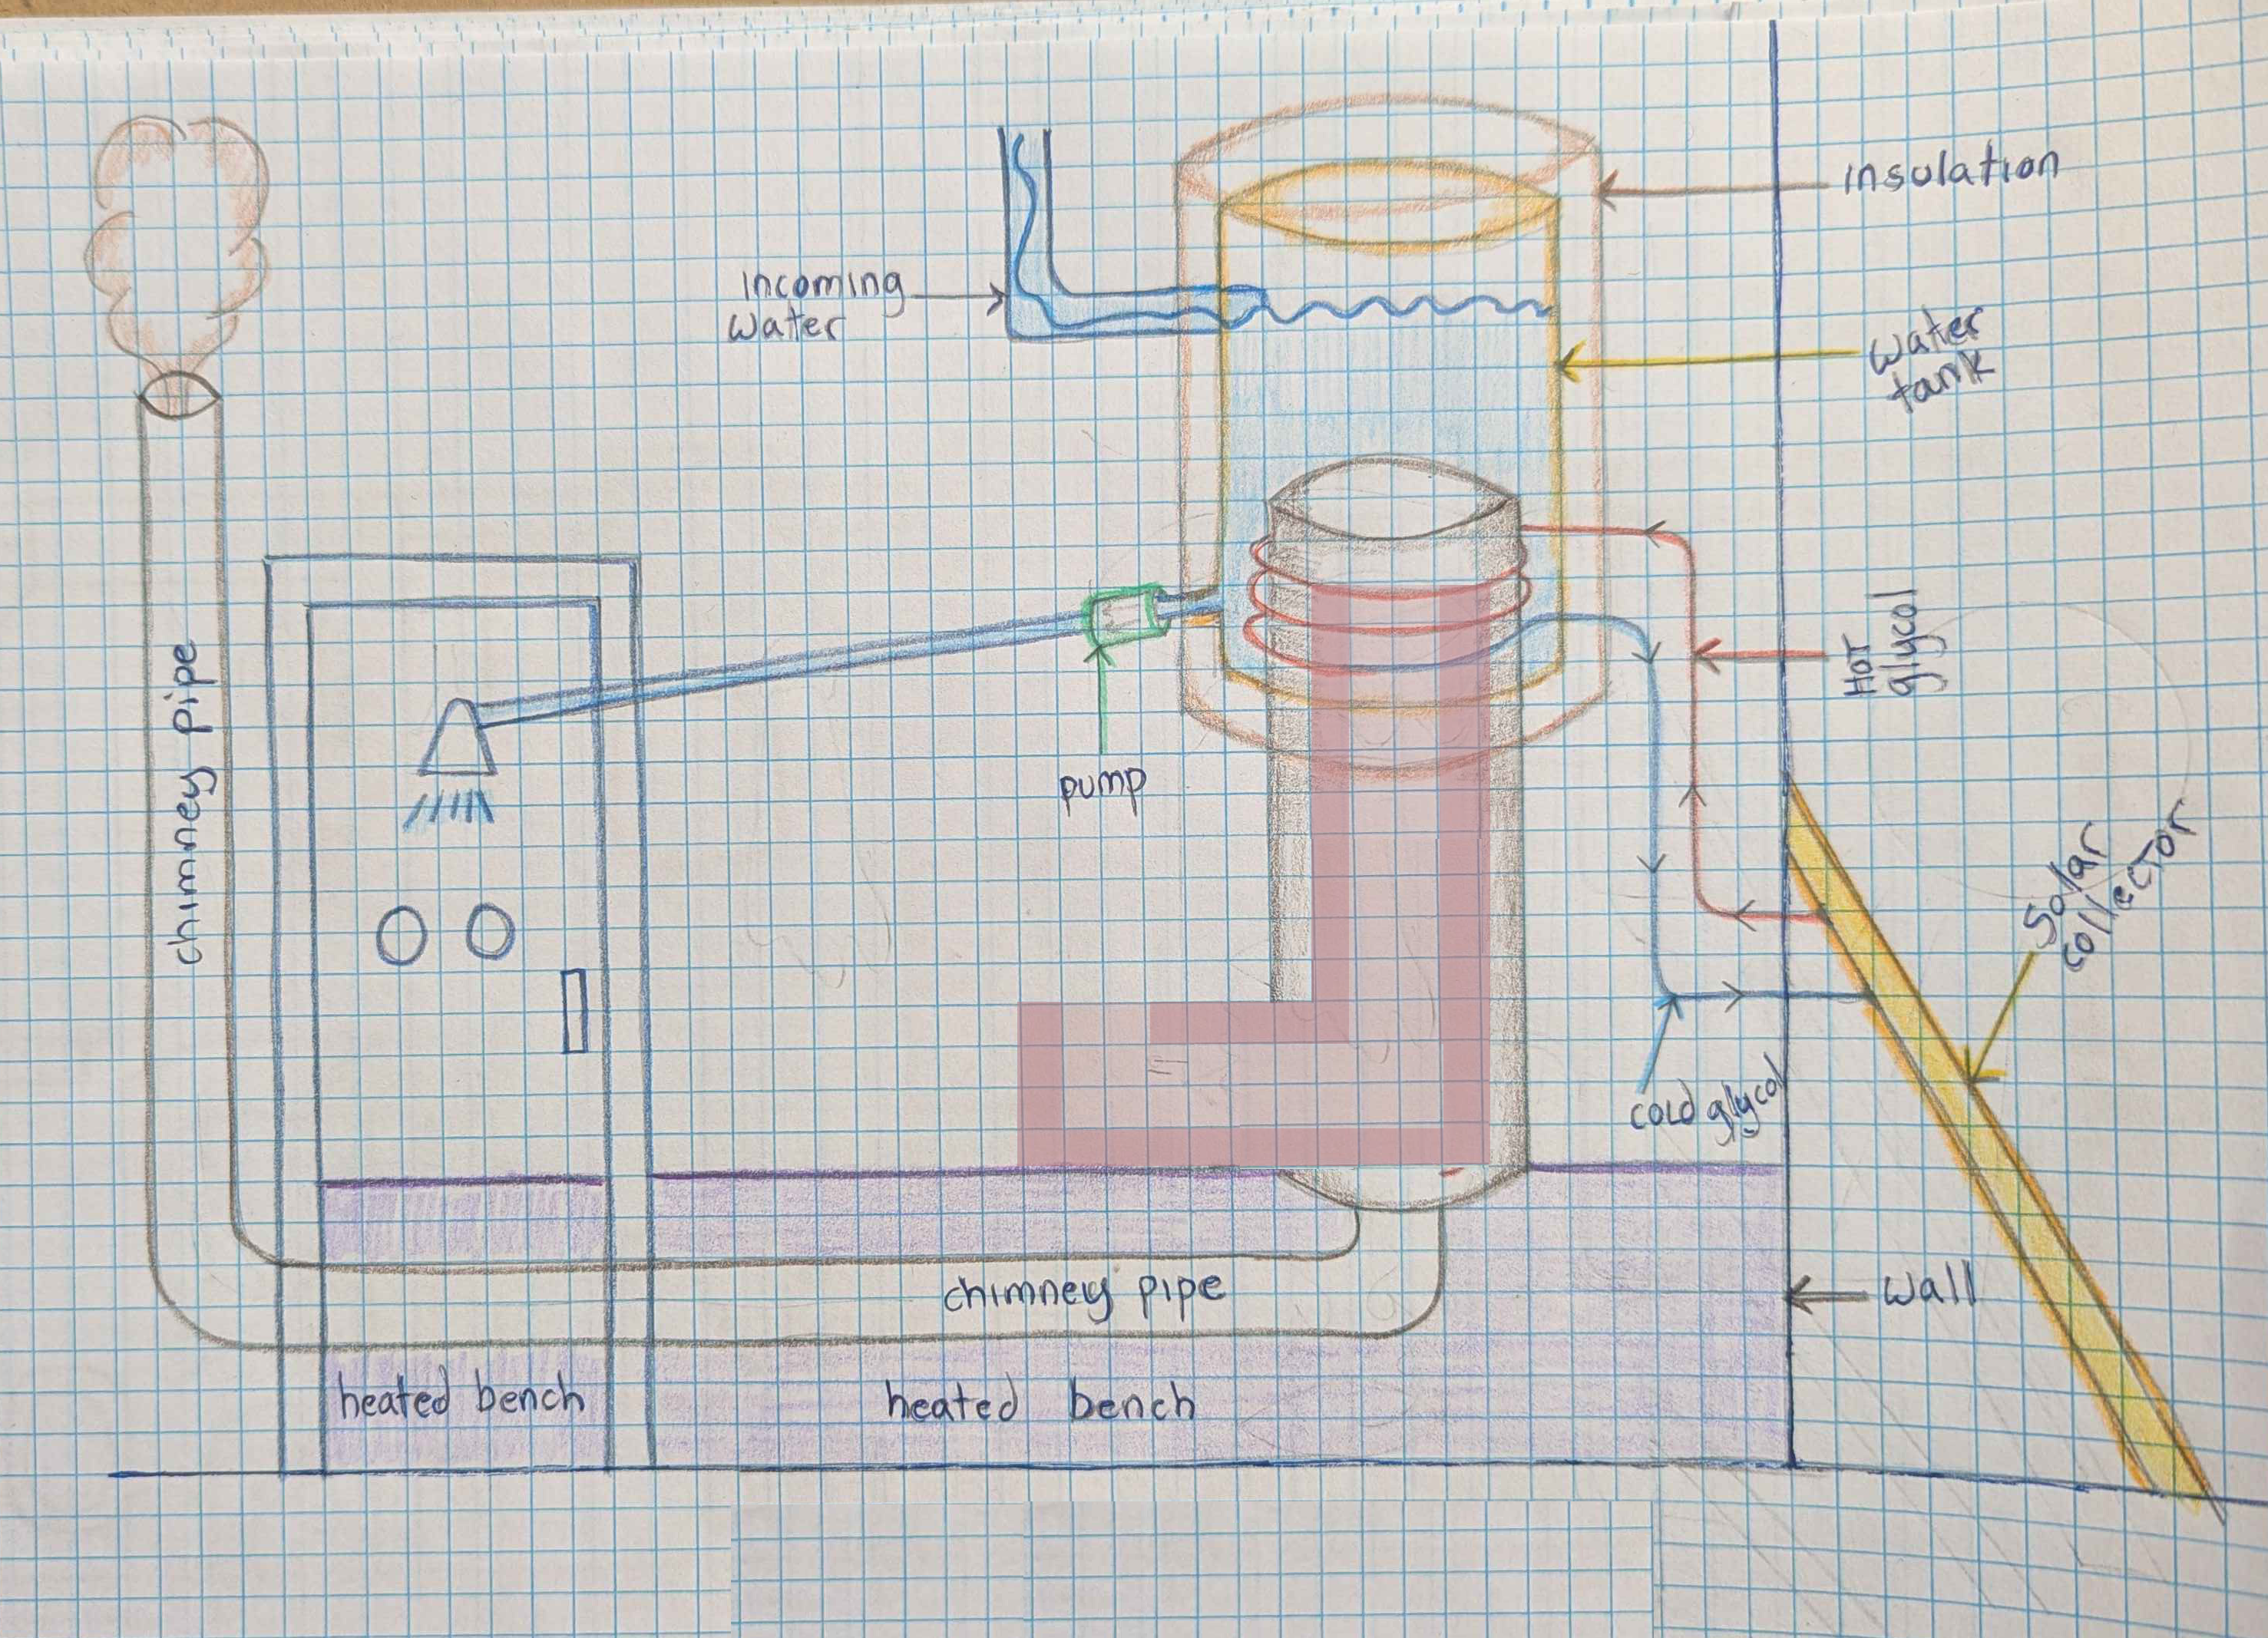 insulation
incoming
water
water
tank
Hot
glycol
chimney pipe
pump
solar
collector
cold glycol
chimney pipe
wall
heated bench
heated bench